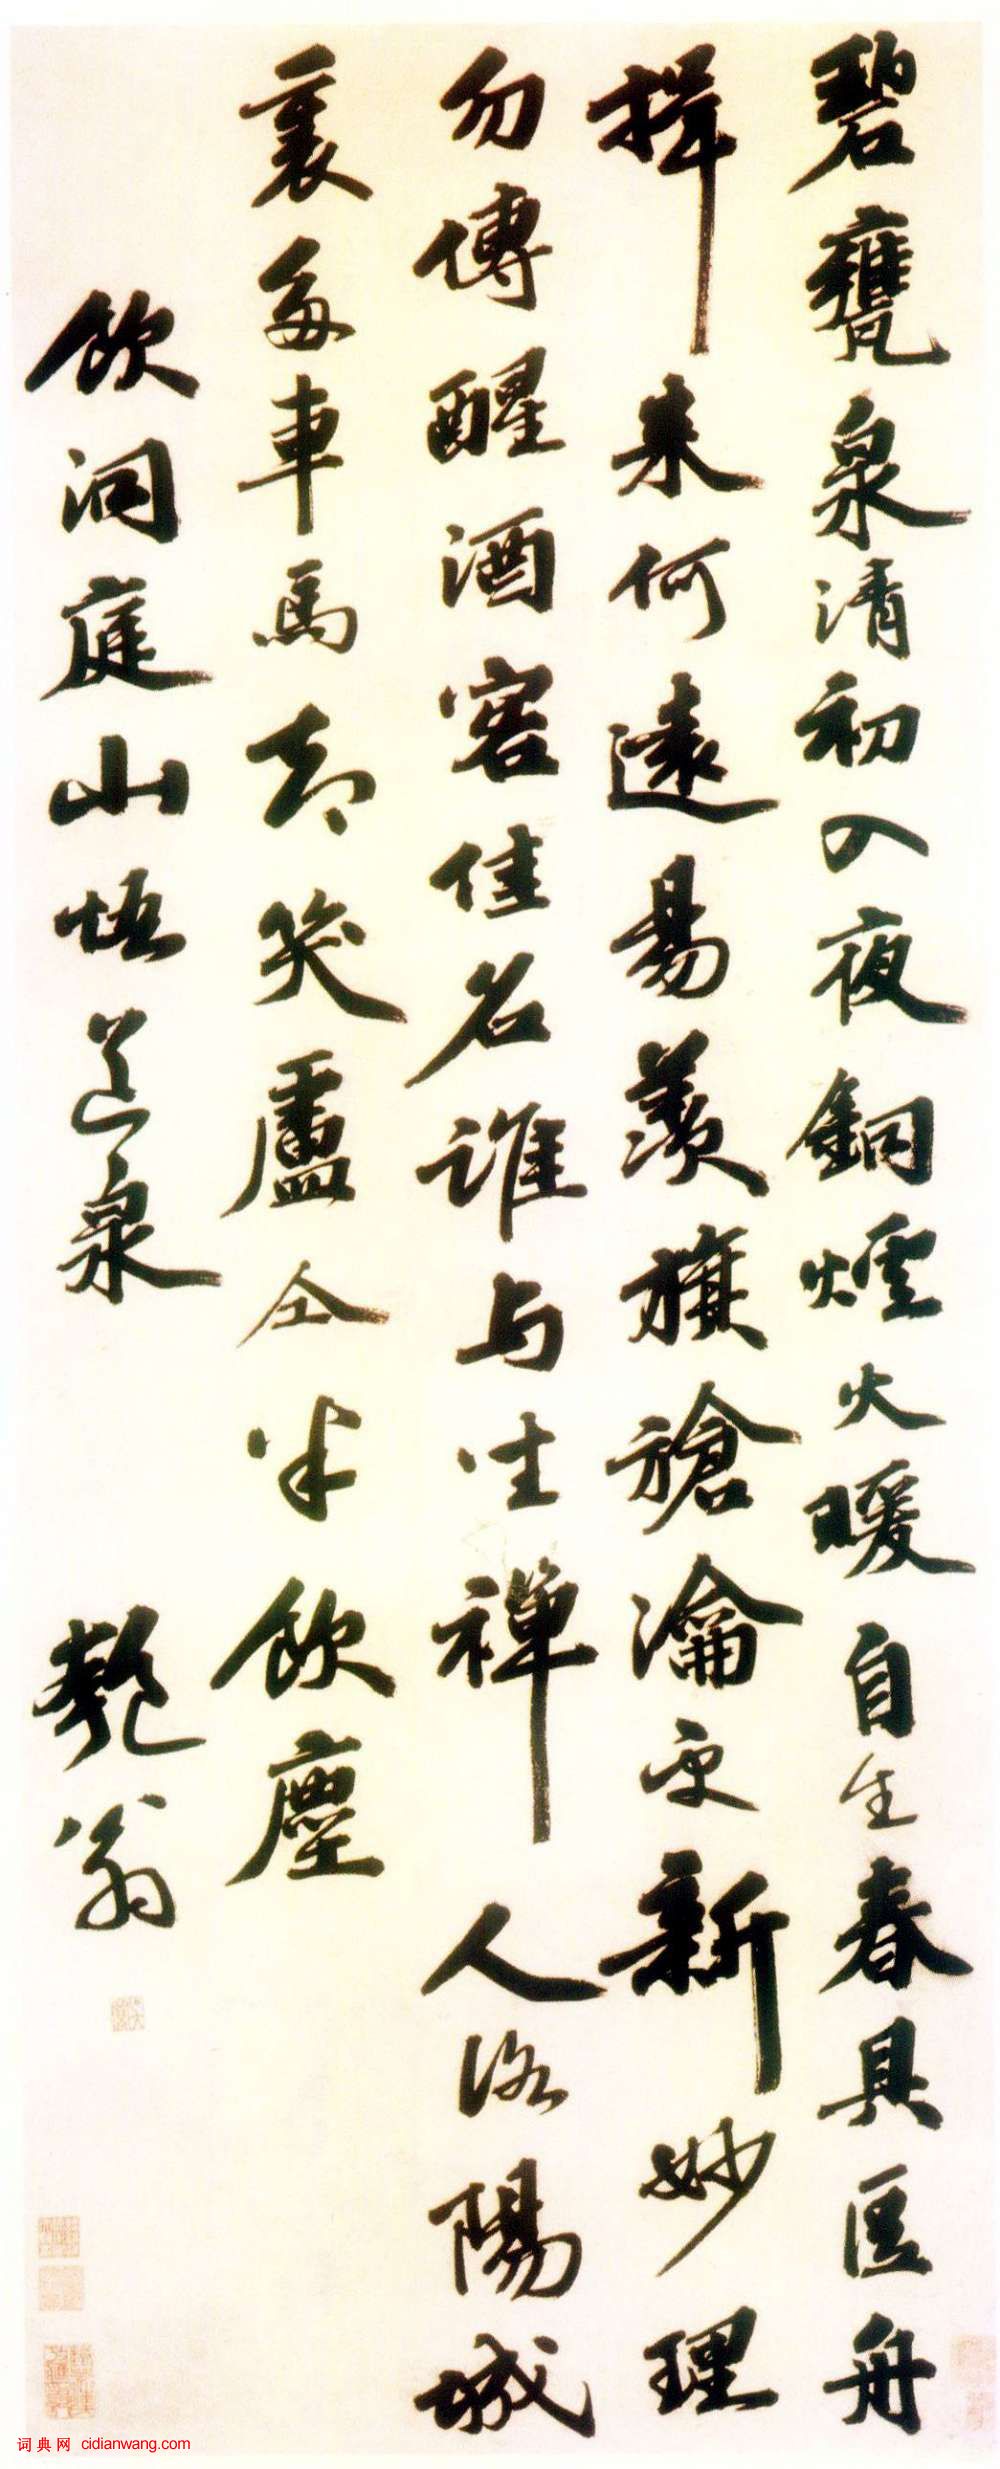 碧甕泉清初入夜銅爐火暖自生春具區舟
楫来何遠易羨旗槍瀹更新妙理
勿傳醒酒客佳名誰与坐禪人洛陽城
裏多車馬却笑盧仝半飲塵
飲洞庭山悟道泉 匏翁
词典网 cidianwang.com